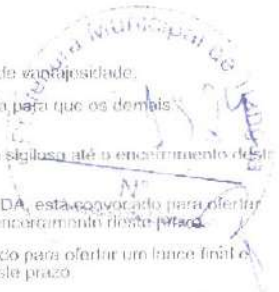 de vantajosidade.
para que os demais
sigiloso até o encerramento deste
DA, está convocado para ofertar
encerramento deste prazo.
do para ofertar um lance final e
ste prazo
Municipal de
Nº